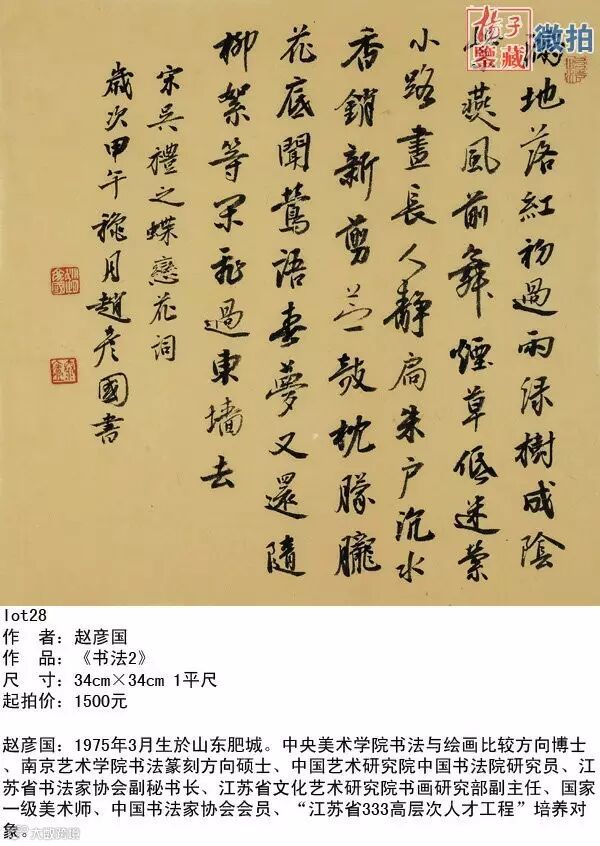 扬子
鉴藏
微拍
滿地落紅初過雨綠樹成陰
紫燕風前舞煙草低迷縈
小路晝長人靜扃朱户沉水
香銷新剪苎敧枕朦朧
花底聞鶯語春夢又還隨
柳絮等閑飛過東墻去
宋吳禮之蝶戀花詞
歲次甲午穐月趙彥國書
lot28
作 者：赵彦国
作 品：《书法2》
尺 寸：34cm×34cm 1平尺
起拍价：1500元
赵彦国：1975年3月生於山东肥城。中央美术学院书法与绘画比较方向博士
、南京艺术学院书法篆刻方向硕士、中国艺术研究院中国书法院研究员、江
苏省书法家协会副秘书长、江苏省文化艺术研究院书画研究部副主任、国家
一级美术师、中国书法家协会会员、“江苏省333高层次人才工程”培养对
象。